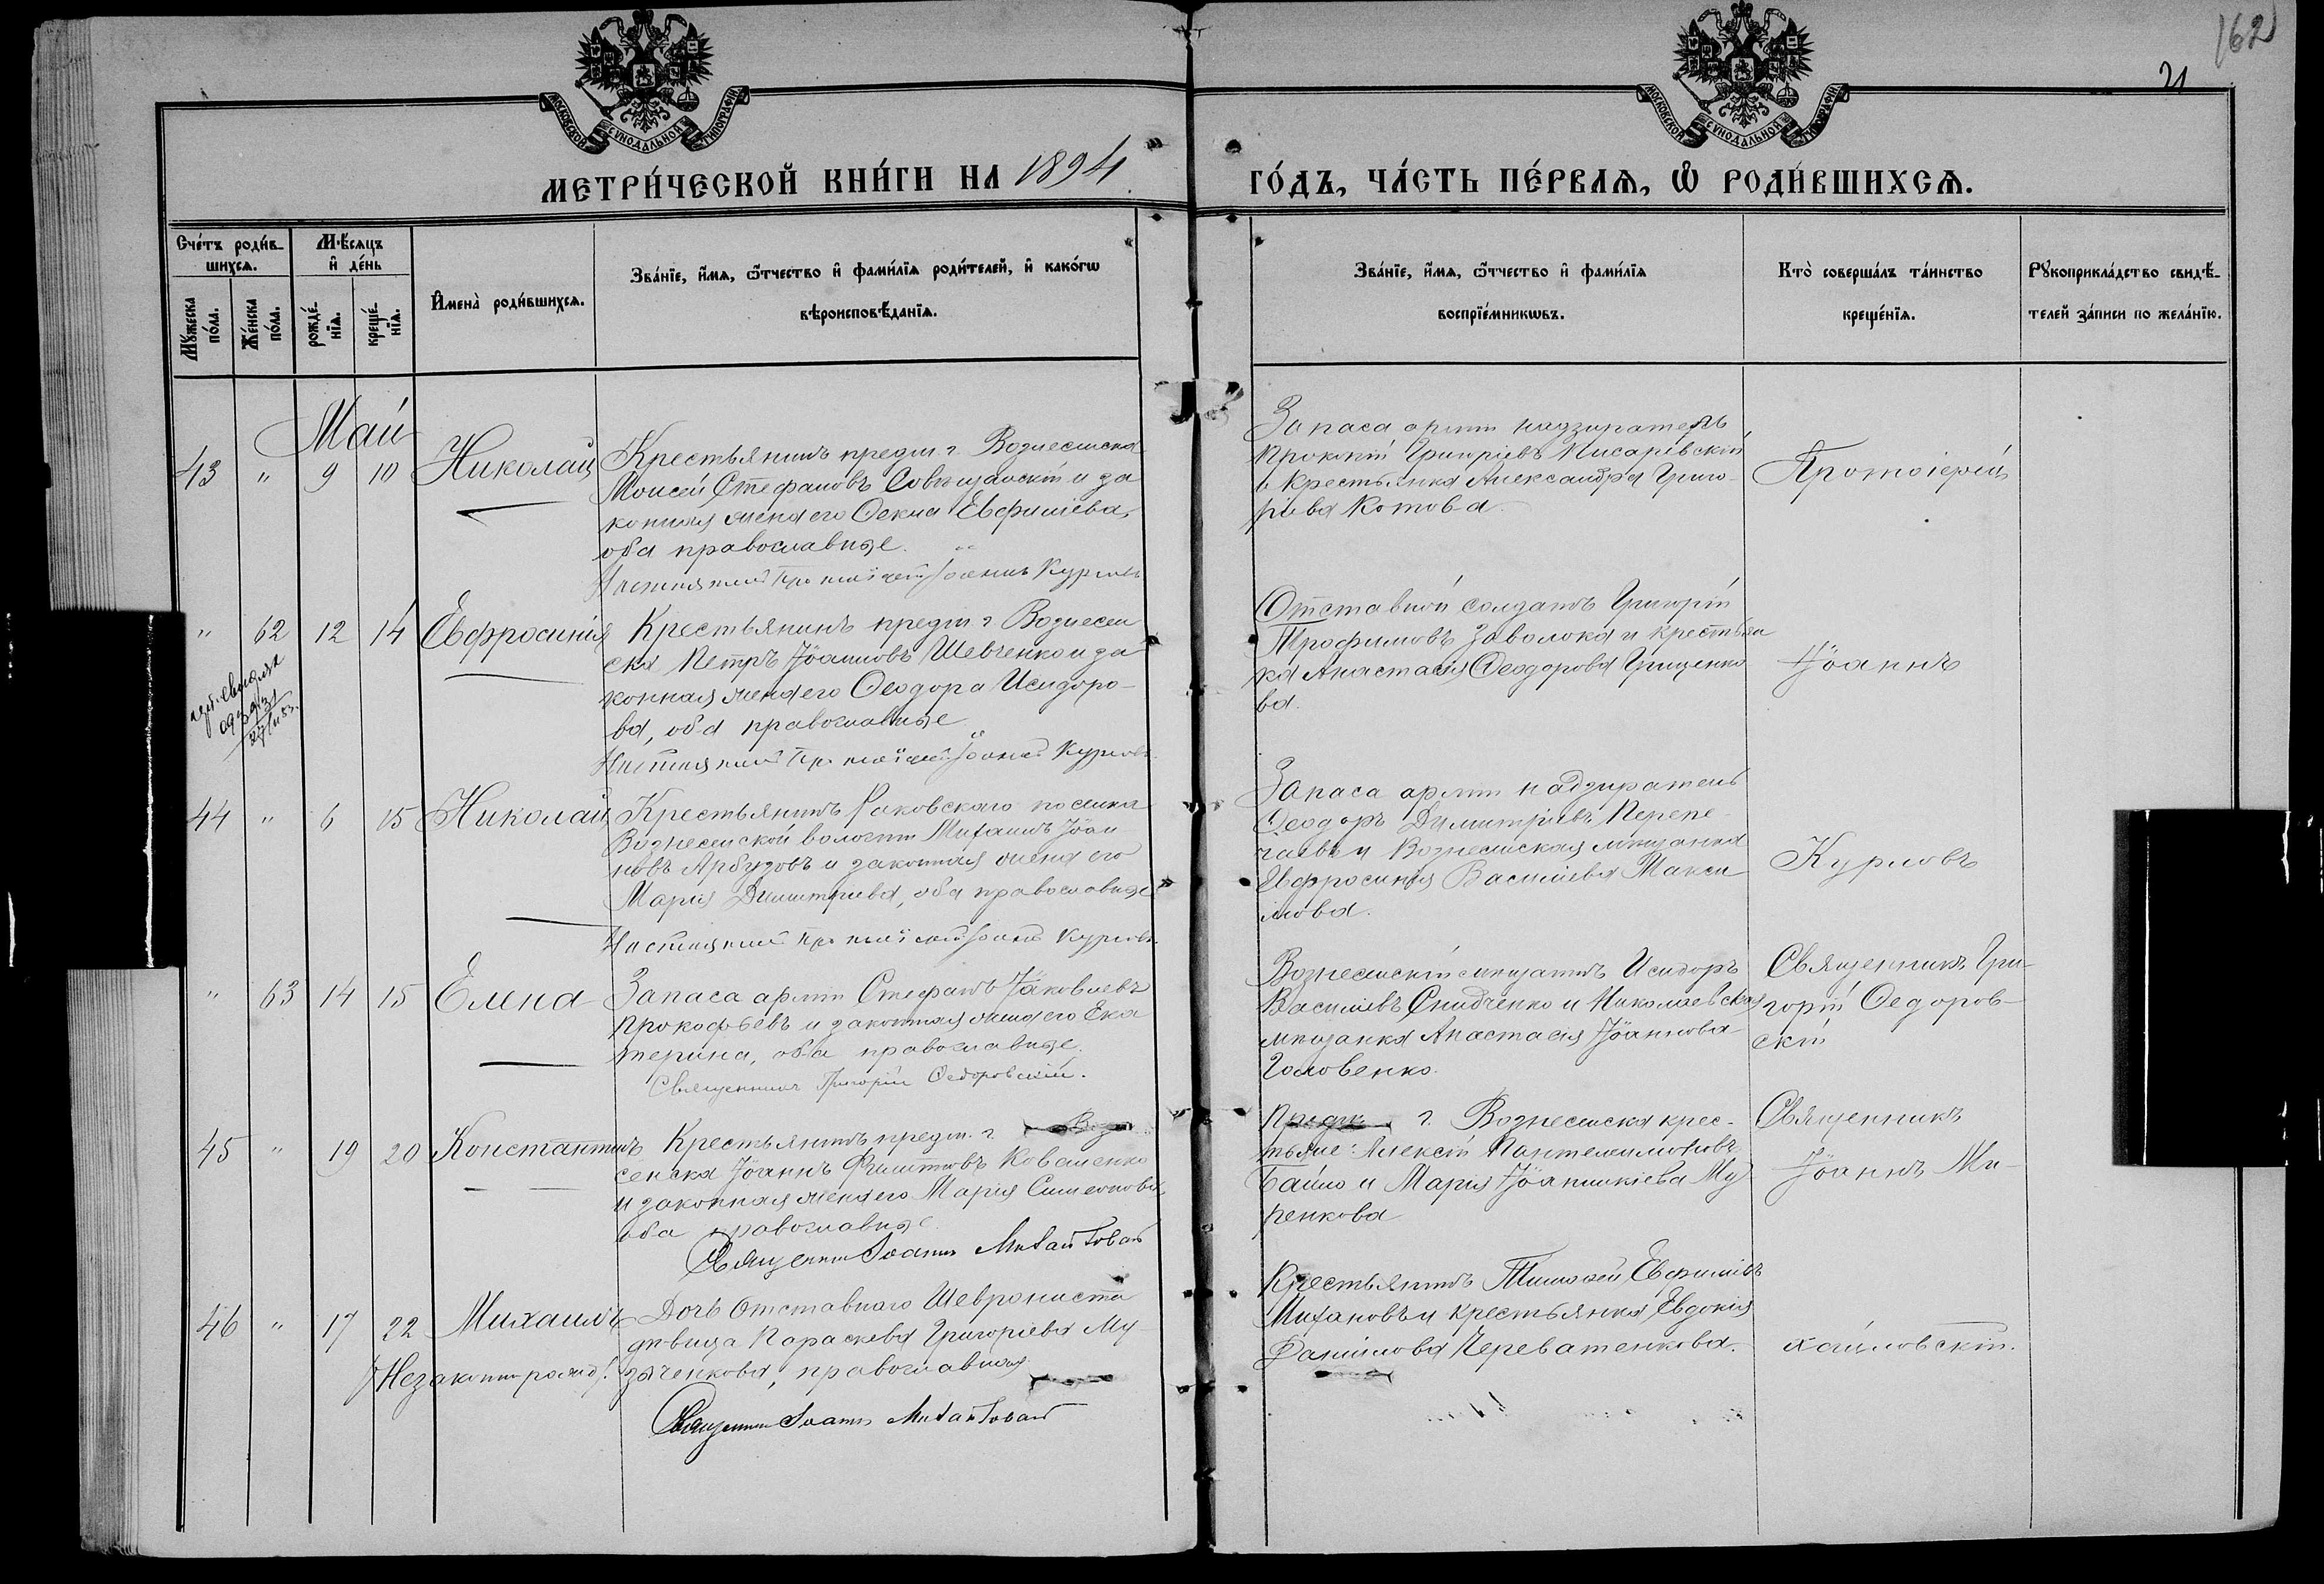 162
21
МОСКОВСКОЙ СѴНОДАЛЬНОЙ ТИПОГРАФІИ
МОСКОВСКОЙ СѴНОДАЛЬНОЙ ТИПОГРАФІИ
МЕТРИ́ЧЕСКОЙ КНИ́ГИ НА 1894 ГО́ДЪ, ЧА́СТЬ ПЕ́РВАѦ, Ѽ РОДИ́ВШИХСѦ.
Сче́тъ роди́в-
шихсѧ.
Мꙋ́жеска по́ла.
Же́нска по́ла.
Мѣ́сѧцъ
и҆ де́нь
рожде́-
нїѧ.
креще́-
нїѧ.
И҆мена̀ роди́вшихсѧ.
Зва́нїе, и҆́мѧ, ѻ҆́тчество и҆ фами́лїѧ роди́телей, и҆ како́гѡ
вѣроисповѣ́данїѧ.
Зва́нїе, и҆́мѧ, ѻ҆́тчество и҆ фами́лїѧ
воспрїе́мникѡвъ.
Кто̀ соверша́лъ та́инство
креще́нїѧ.
Рꙋкоприкла́дство свидѣ́-
телей за́писи по жела́нїю.
Май
43 " 9 10 Николай
Крестьянинъ предм. г. Вознесенска
Моисей Стефановъ и за
конная жена его Ѳекла Евфиміева,
оба православные.
Іоаннъ Курловъ
Запаса арміи надзиратель
Григоріевъ Писаревскій
и крестьянка Александра Григо-
ріева Котова.
Протоіерей
" 62 12 14 Евфросинія
Крестьянинъ предм. г. Вознесен
ска Петръ Іоанновъ Шевченко и за
конная жена его Ѳеодора Исидоро-
ва, оба православные
Іоаннъ Курловъ
Отставной солдатъ Григорій
Трофимовъ Заволока и крестьян
ка Анастасія Ѳеодорова Грищенко
ва.
Іоаннъ
44 " 6 15 Николай
Крестьянинъ поселка
Вознесенской волости Михаилъ Іоан
новъ Арбузовъ и законная жена его
Марія Димитріева, оба православные
Іоаннъ Курловъ
Запаса арміи надзиратель
Ѳеодоръ Димитріевъ Перепе-
и Вознесенская мѣщанка
Евфросинія Василіева Макси
мова.
Курловъ
" 63 14 15 Елена
Запаса арміи Стефанъ Іаковлевъ
Прокофьевъ и законная жена его Ека
терина, оба православные.
Священникъ Григорій Ѳедоровскій.
Вознесенскій мѣщанинъ Исидоръ
Василіевъ и Николаевская
мѣщанка Анастасія Іоаннова
Головенко.
Священникъ Гри-
горій Ѳедоров-
скій
45 " 19 20 Константинъ
Крестьянинъ предм. г. Возне
сенска Іоаннъ Коваленко
и законная жена его Марія Симеонова,
оба православные.
Священникъ Іоаннъ
г. Вознесенска крес-
тьяне: Алексій Пантелеимоновъ
и Марія Му-
ренкова
Священникъ
Іоаннъ Ми-
46 " 17 22 Михаилъ
(Незаконнорожд.)
Дочь отставного Шеврониста
дѣвица Параскева Григоріева Му-
зяченкова, православная
Священникъ Іоаннъ
Крестьянинъ Тимофей Евфиміевъ
и крестьянка Евдокія
Даніилова Череватенкова.
хайловскій.